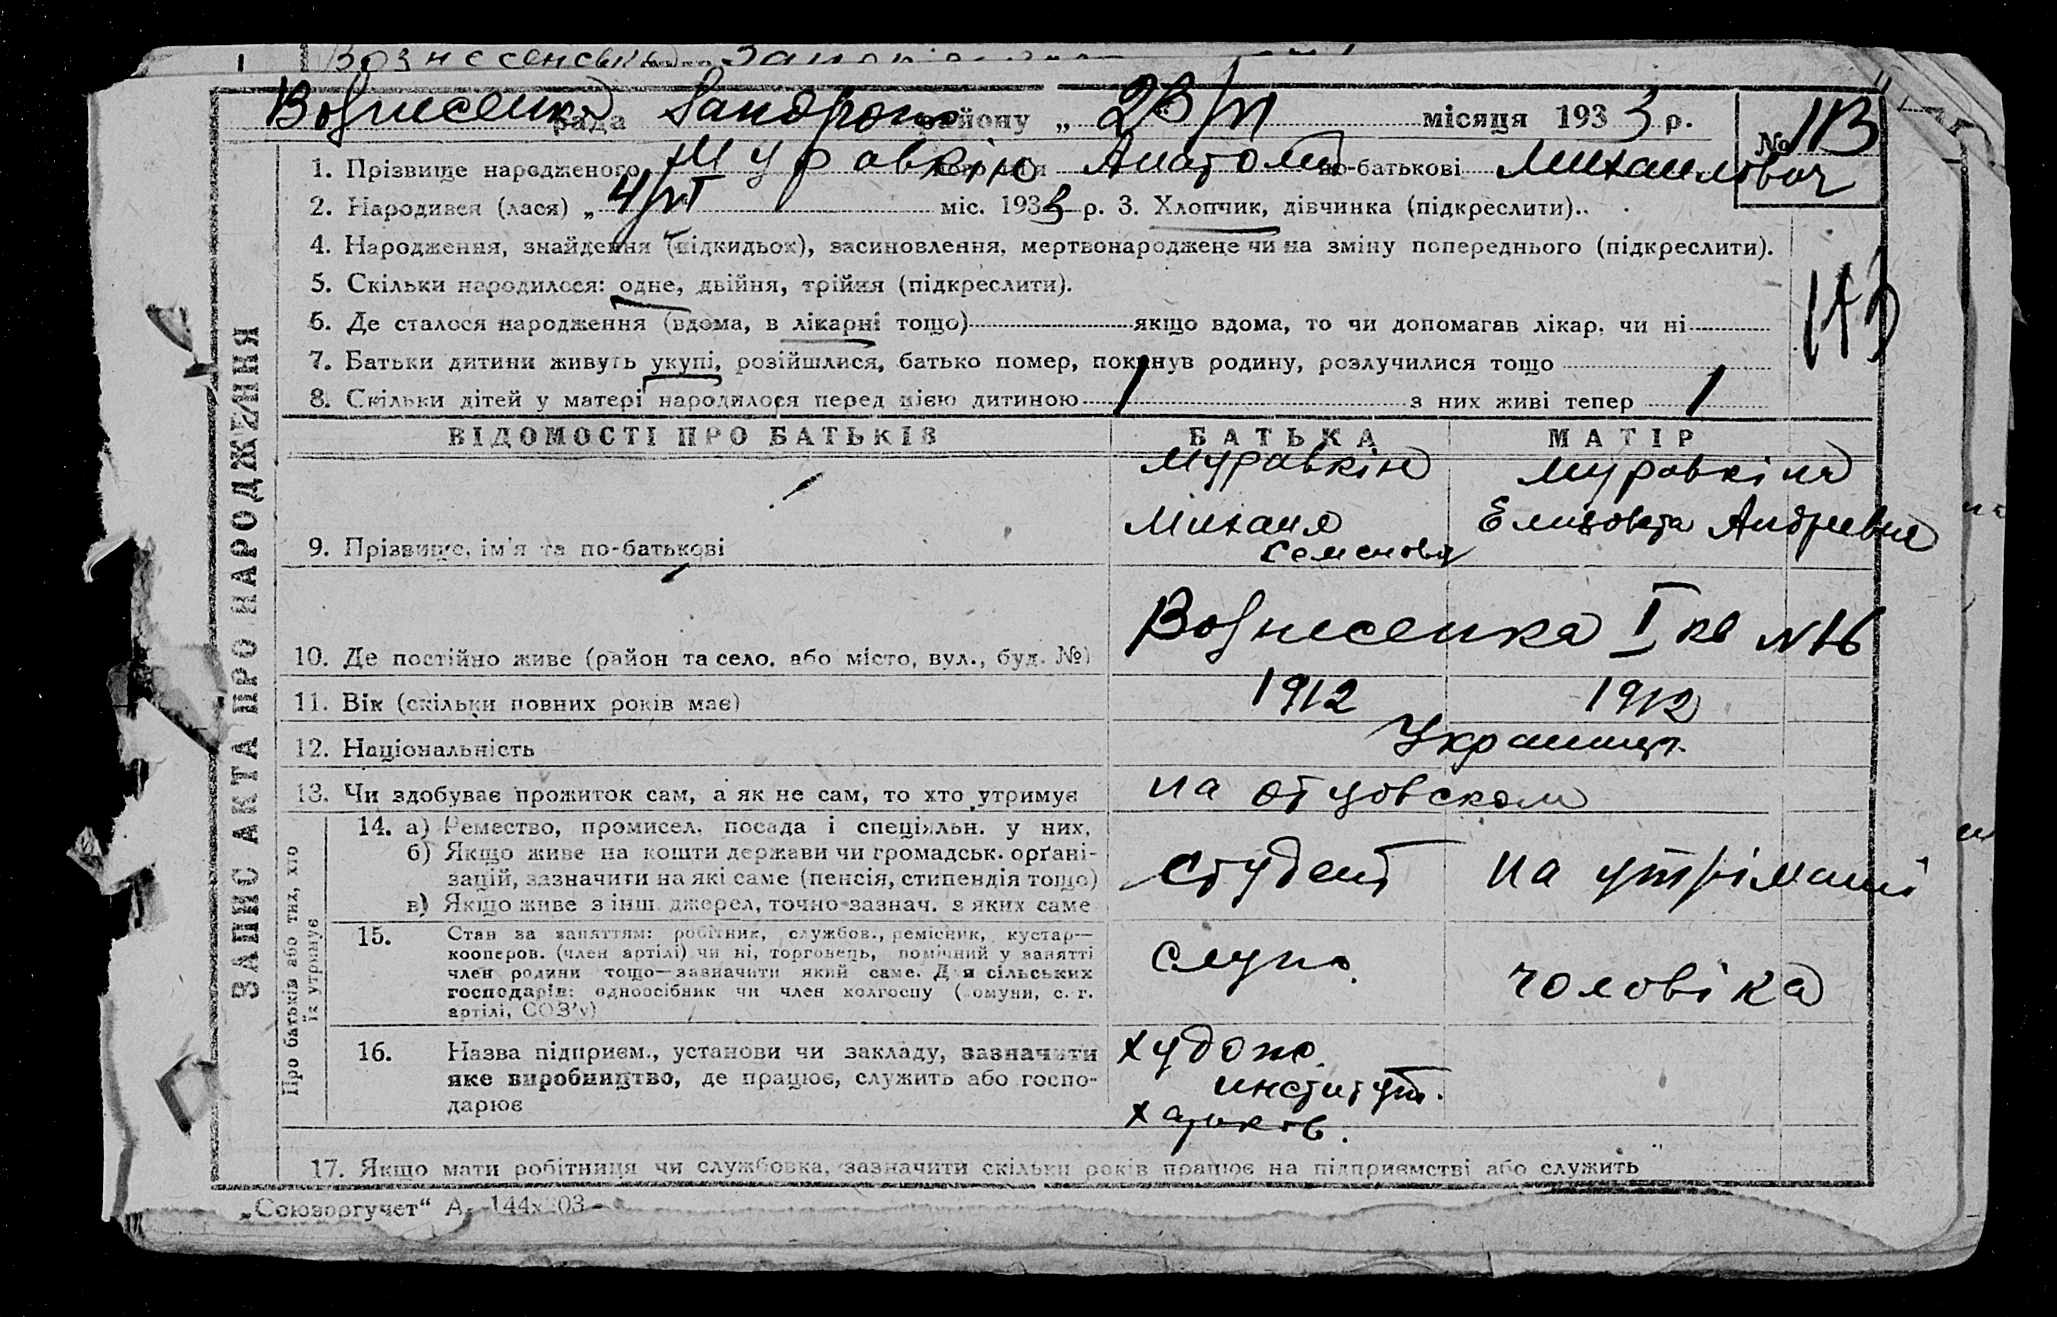 Вознесенка рада Запорож району „ 23/VI місяця 1933 р. №
1. Прізвище народженого Муравкін Анатолій по-батькові Михайлович
2. Народився (лася) „ 4/VI міс. 1933 р. 3. Хлопчик, дівчинка (підкреслити)..
4. Народження, знайдення (підкидьок), засиновлення, мертвонароджене чи на зміну попереднього (підкреслити).
5. Скільки народилося: одне, двійня, трійня (підкреслити).
6. Де сталося народження (вдома, в лікарні тощо) якщо вдома, то чи допомагав лікар, чи ні
7. Батьки дитини живуть укупі, розійшлися, батько помер, покинув родину, розлучилися тощо
8. Скільки дітей у матері народилося перед цією дитиною 1 з них живі тепер 1
ЗАПИС АКТА ПРО НАРОДЖЕННЯ
ВІДОМОСТІ ПРО БАТЬКІВ БАТЬКА МАТІР
Муравкін Муравкіна
Михаил Елизовета Андреевна
9. Прізвище, ім'я та по-батькові Семенович
10. Де постійно живе (район та село, або місто, вул., буд. №) Вознесенка I кв N 16
11. Вік (скільки повних років має) 1912 1912
12. Національність Украинцы
13. Чи здобуває прожиток сам, а як не сам, то хто утримує на отцовском
Про батьків або тих, хто
їх утримує
14. а) Ремество, промисел, посада і спеціяльн. у них,
б) Якщо живе на кошти держави чи громадськ. орґані-
зацій, зазначити на які саме (пенсія, стипендія тощо)
в) Якщо живе з інш. джерел, точно зазнач. з яких саме
студент на утріманні
15. Стан за заняттям: робітник, службов., ремісник, кустар—
кооперов. (член артілі) чи ні, торговець, помічний у занятті
член родини тощо—зазначити який саме. Для сільських
господарів: одноосібник чи член колгоспу (комуни, с.-г.
артілі, СОЗ'у)
служ. чоловіка
16. Назва підприєм., установи чи закладу, зазначити
яке виробництво, де працює, служить або госпо-
дарює
худож.
институт.
Харьков.
17. Якщо мати робітниця чи службовка, зазначити скільки років працює на підприємстві або служить
„Союзоргучет“ А